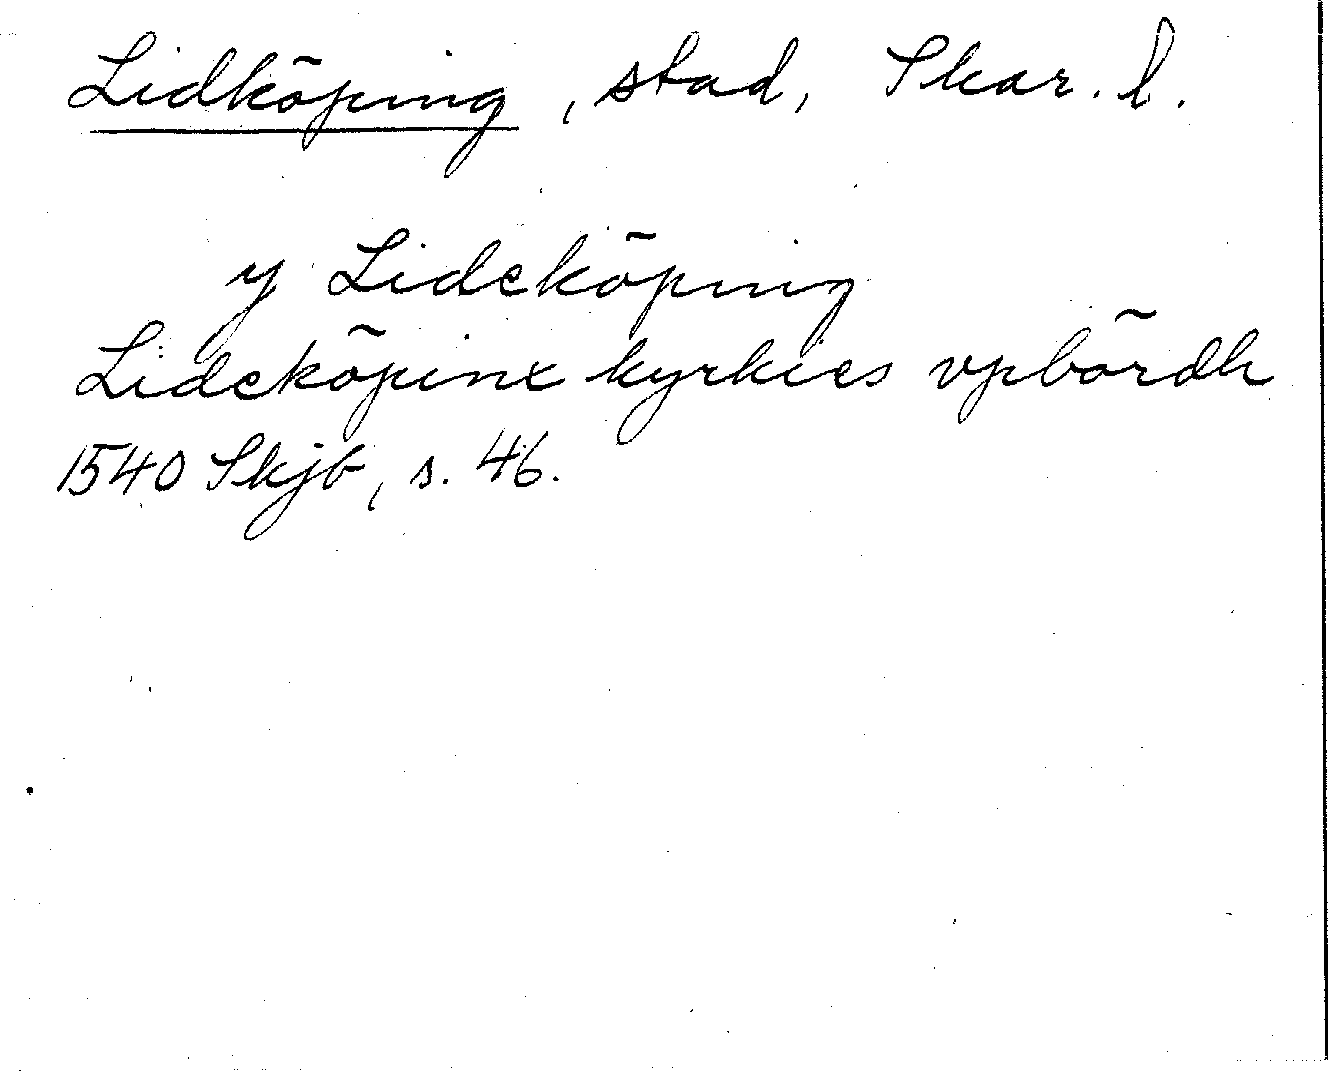 Lidköping, stad, Skar. l.
y Lideköping
Lideköpinx kyrkies vpbördh
1540 Skjb, s. 46.